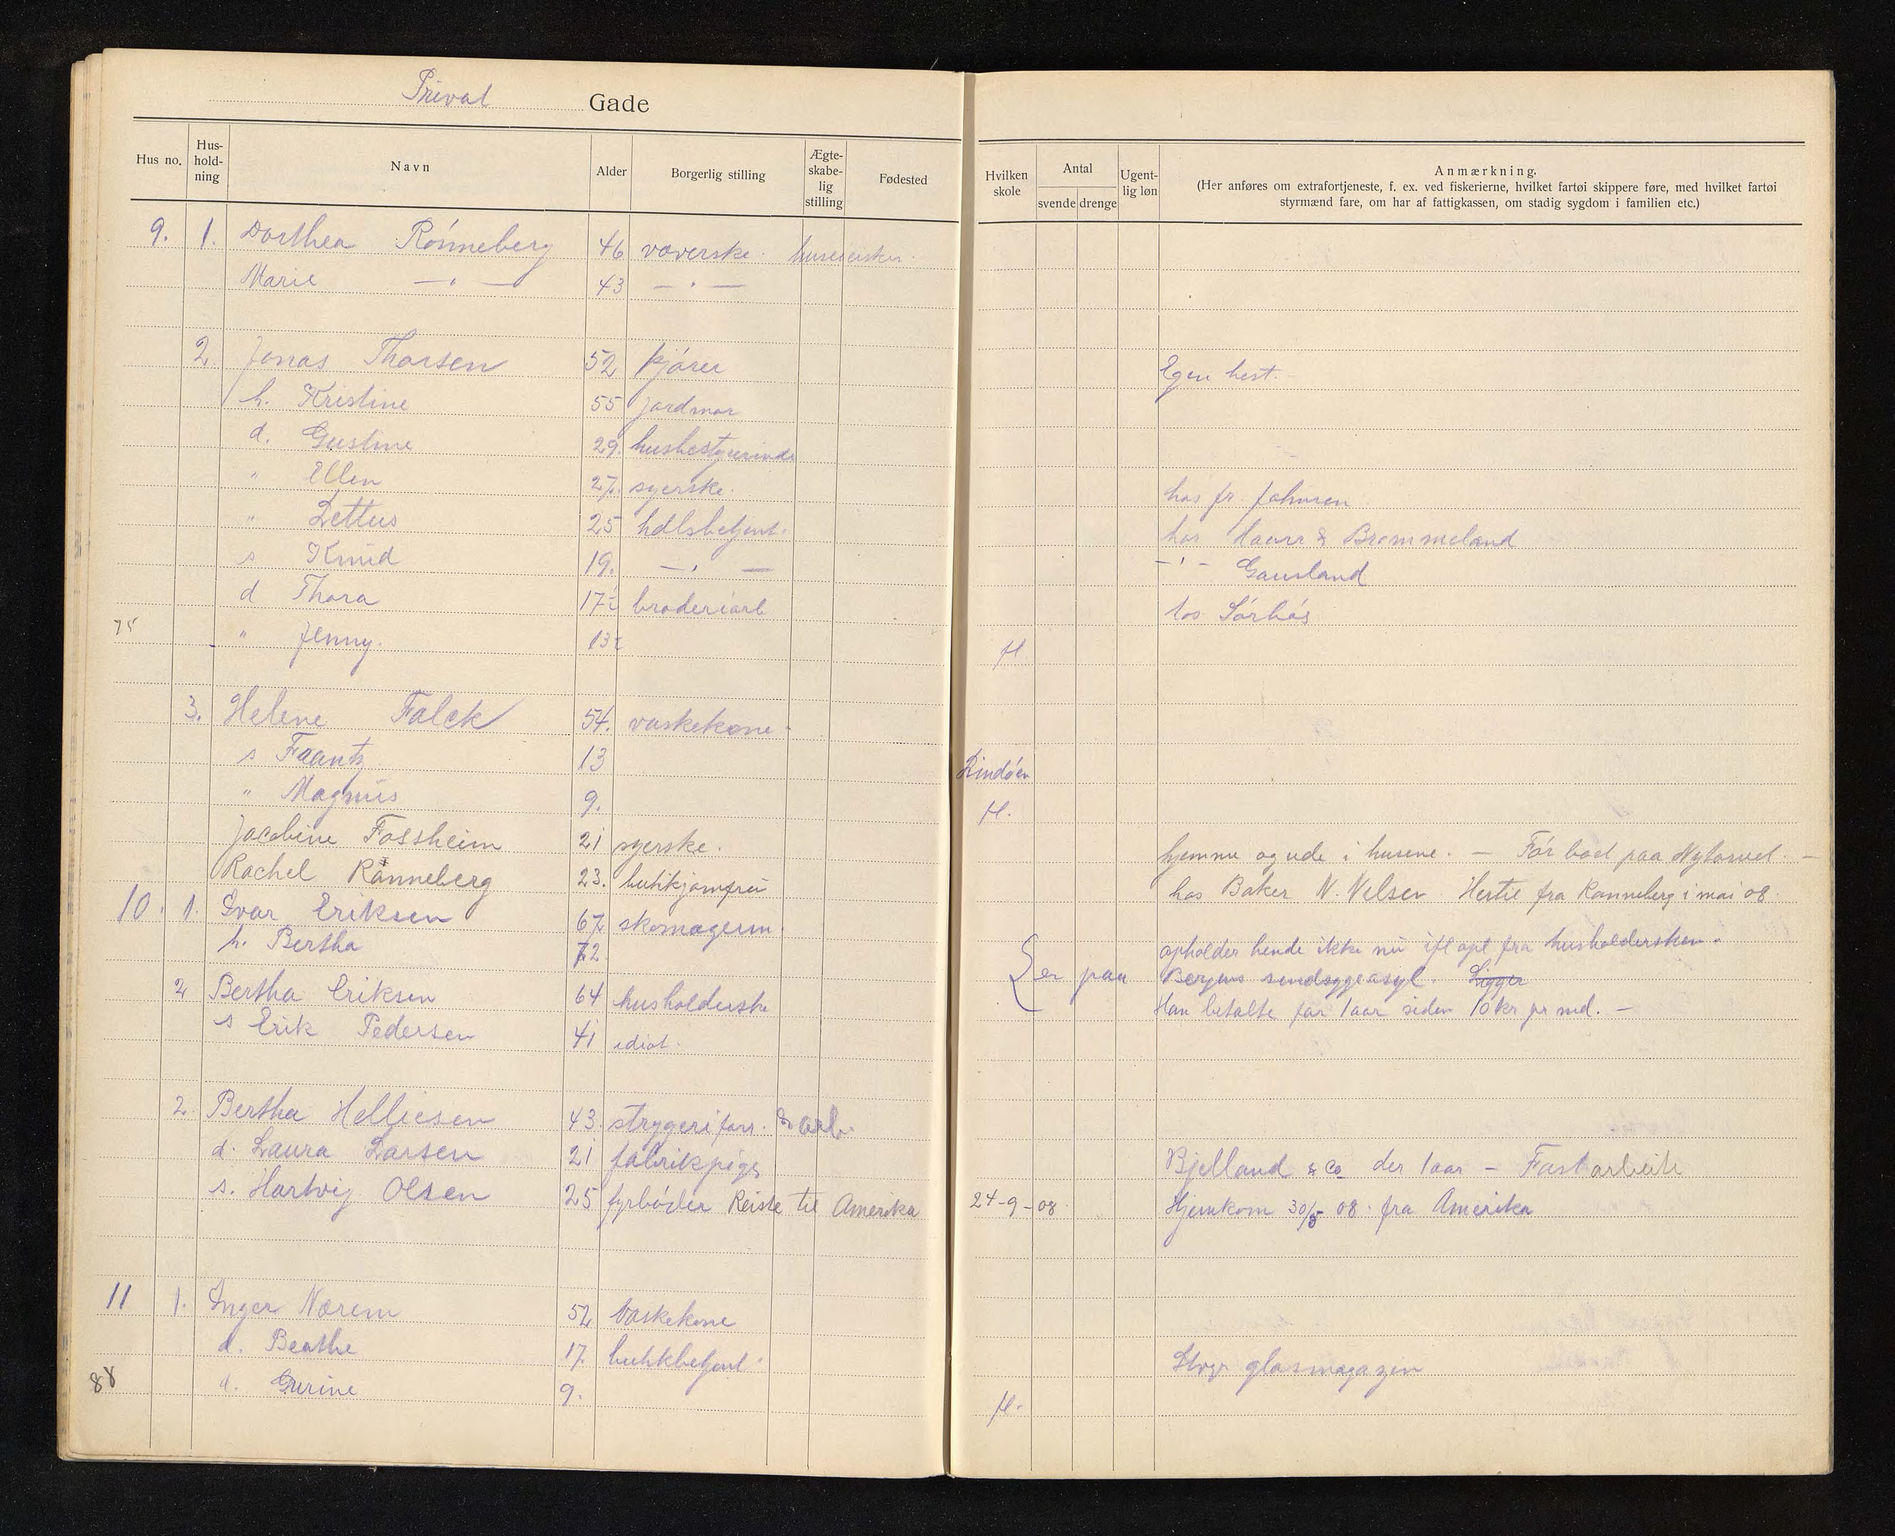 Privat Gade
Hus no. Hus-hold-ning Navn Alder Borgerlig stilling Ægte-skabe-lig stilling Fødested Hvilken skole Antal svende drenge Ugent-lig løn Anmærkning.
(Her anføres om extrafortjeneste, f. ex. ved fiskerierne, hvilket fartøi skippere føre, med hvilket fartøi
styrmænd fare, om har af fattigkassen, om stadig sygdom i familien etc.)
9. 1. Dorthea Rønneberg 46 væverske. huseiersker.
Marie — " — 43 — " —
2. Jonas Thorsen 52 kjører Egen hest.
h. Kristine 55 jordmor
d. Gustine 29. husbestyrerinde
" Ellen 27. syerske. hos fr. Johnsen
" Lettus 25 hdlsbetjent. hos Haarr & Brommeland
s Knud 19. — " — — " — Gausland
d Thora 17½ broderiarb hos Sørbøs
75 " Jenny. 13½ H.
3. Helene Falck 54. vaskekone.
s Frantz 13 Lindøen
" Magnus 9. H.
Jacobine Fossheim 21 syerske. hjemme og ude i husene. — Før boet paa Nytorvet. —
Rachel Rønneberg 23. butikjomfru hos Baker N. Nelsen Hertil fra Ranneberg i mai 08.
10. 1. Ivar Eriksen 67 skomagerm.
h. Bertha 72 { er paa opholder hende ikke nu ifl opl fra husholdersken.
2 Bertha Eriksen 64 husholderske Bergens sindsygeasyl. Ligger
Han betalte for 1 aar siden 10 kr pr md. —
s Erik Pedersen 41 idiot.
2 Bertha Helliesen 43. strygeriforr. & arb.
d. Laura Larsen 21 fabrikpige Bjelland & Co der 1 aar — Fast arbeide
s. Hartvig Olsen 25 fyrbøder Reiste til Amerika 24-9-08. Hjemkom 30/5 08. fra Amerika
11 1. Inger Nærem 52 Vaskekone
d. Beathe 17. butikbetjent. Stvgr glasmagazin
88 d. Gurine 9. H.